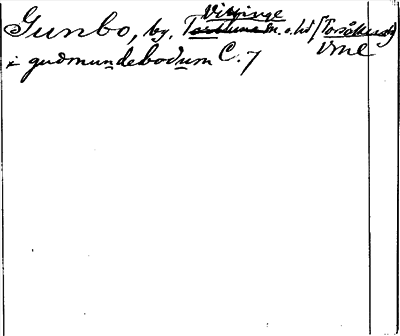 Vittinge
Gunbo, by, Torstuna sn. o. hd (Torsåkers)
i gudmundebodum C. 7 Vml